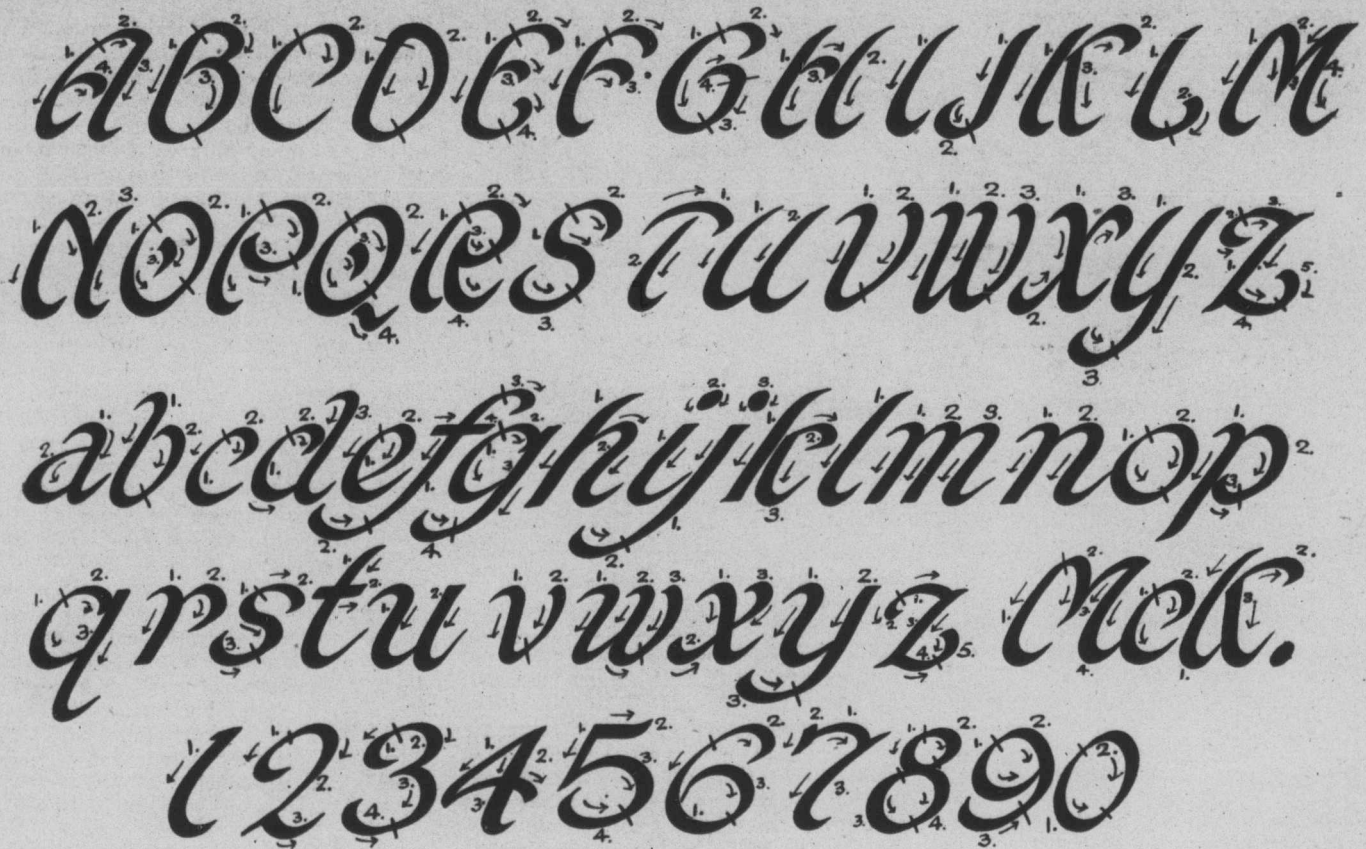 ABCDEFGHIJKLM
NOPQRSTUVWXYZ
abcdefghijklmnop
qrstu vwxyz McK.
1234567890